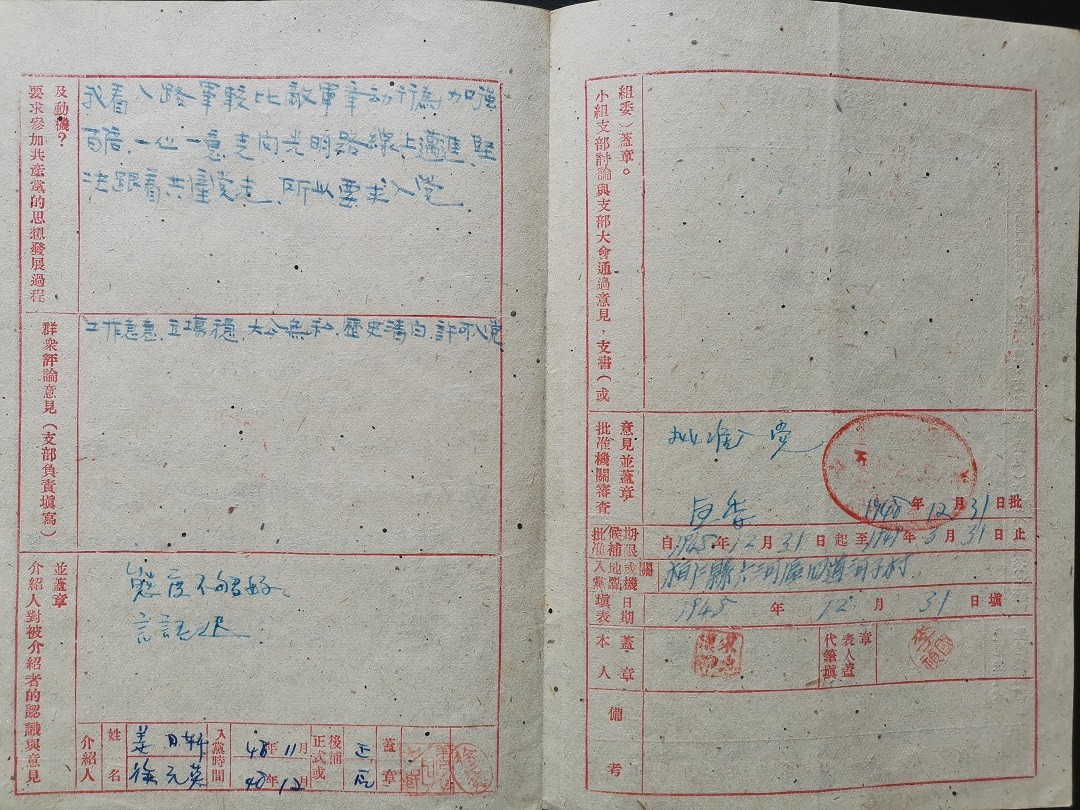 要求參加共產黨的思想發展過程
及動機？
我看八路軍較比敵軍章动行為加強
百倍、一心一意走向光明路線上邁進、堅
法跟着共產党走、所以要求入党、
群衆評論意見（支部負責塡寫）
工作意、立塲穩、大公無私、歷史清白、許可入党
介紹人對被介紹者的認識與意見
並蓋章
態度不够好、
言語
介紹人
姓名
姜
徐元英
入黨時間
48年11月
48年12
正式或
後補
正
蓋章
小組支部討論與支部大會通過意見，支書（或
組委）蓋章。
批准機關審查
意見並蓋章
批准入党
1948年12月31日批
批准候補期限
自1948年12月31日起至1949年3月31日止
入黨地點或機關
桓仁縣六河區四道河子村
塡表日期
1948年12月31日塡
本人蓋章
代筆塡表人蓋章
備考